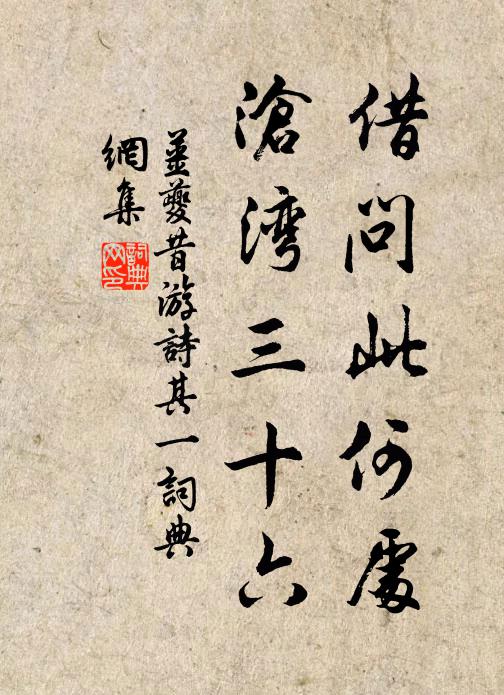 借問此何處
滄灣三十六
姜夔昔游詩其一詞典
網集
詞典
网印